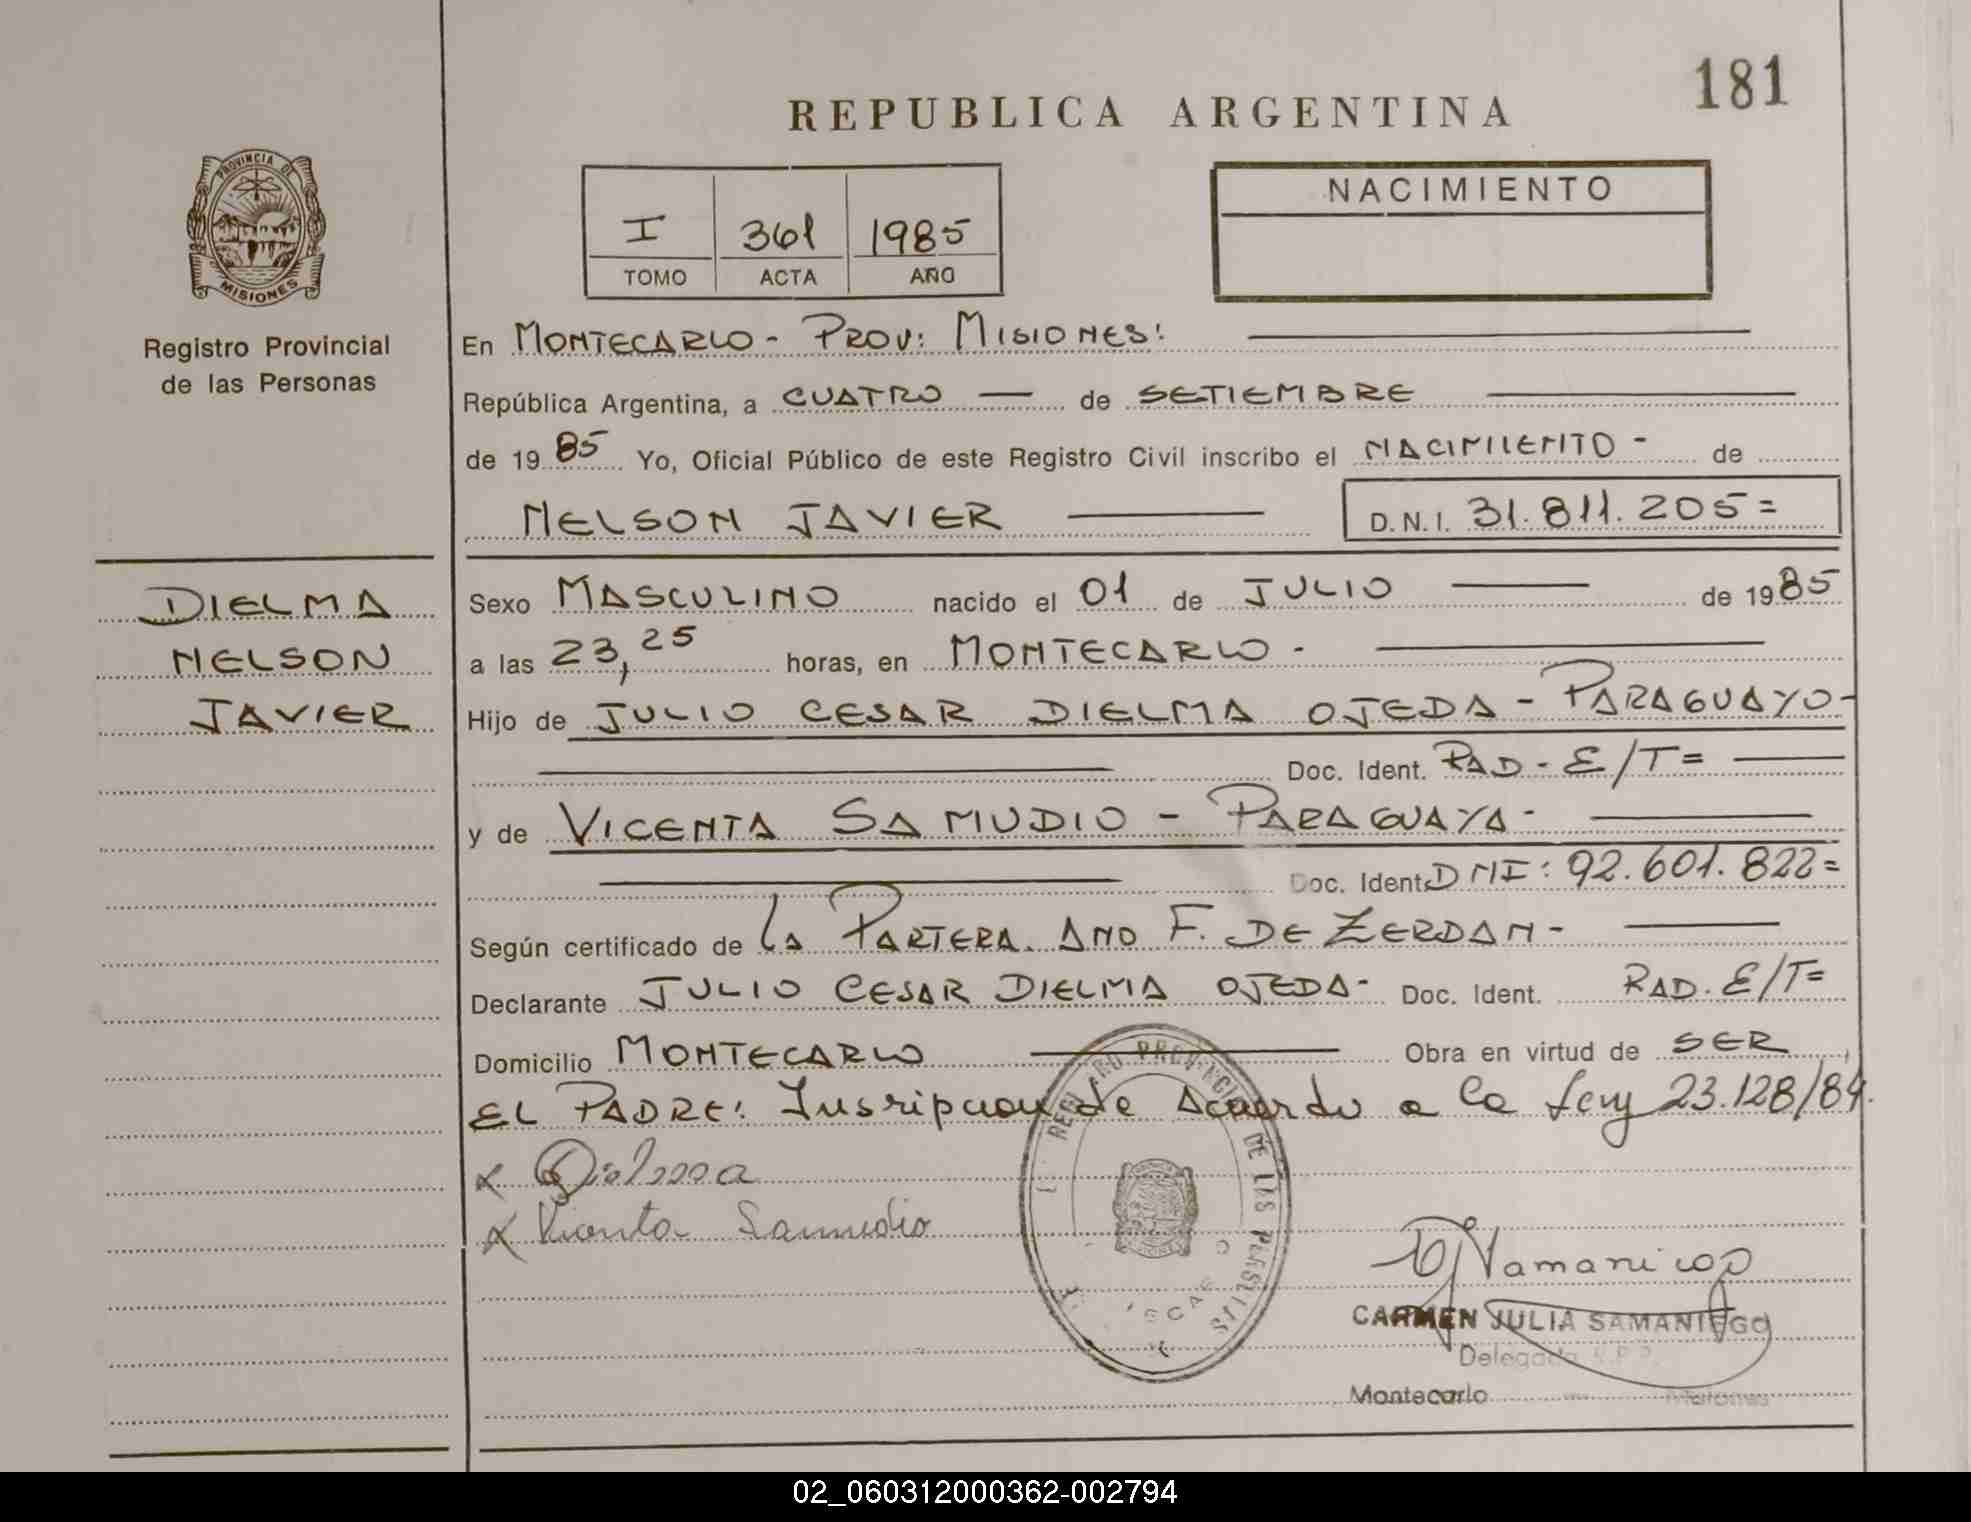 181
REPUBLICA ARGENTINA
PROVINCIA DE
MISIONES
Registro Provincial
de las Personas
I 361 1985
TOMO ACTA AÑO
NACIMIENTO
En MONTECARLO - PROV: MISIONES:
República Argentina, a CUATRO — de SETIEMBRE
de 1985 Yo, Oficial Público de este Registro Civil inscribo el NACIMIENTO - de
NELSON JAVIER D.N.I. 31.811.205=
DIELMA
NELSON
JAVIER
Sexo MASCULINO nacido el 01 de JULIO de 1985
a las 23,25 horas, en MONTECARLO -
Hijo de JULIO CESAR DIELMA OJEDA - PARAGUAYO -
Doc. Ident. RAD - E/T=
y de VICENTA SAMUDIO - PARAGUAYA -
Doc. Ident. DNI: 92.601.822=
Según certificado de LA PARTERA ANO F. DE ZERDAN -
Declarante JULIO CESAR DIELMA OJEDA - Doc. Ident. RAD. E/T=
Domicilio MONTECARLO Obra en virtud de SER
EL PADRE: Insripcion de Acuerdo a la Ley 23.128/84.
Dielma
Vicenta Samudio
REGISTRO PROVINCIAL DE LAS PERSONAS
CARMEN JULIA SAMANIEGO
Delegada R.P.P.
Montecarlo - Misiones
02_060312000362-002794